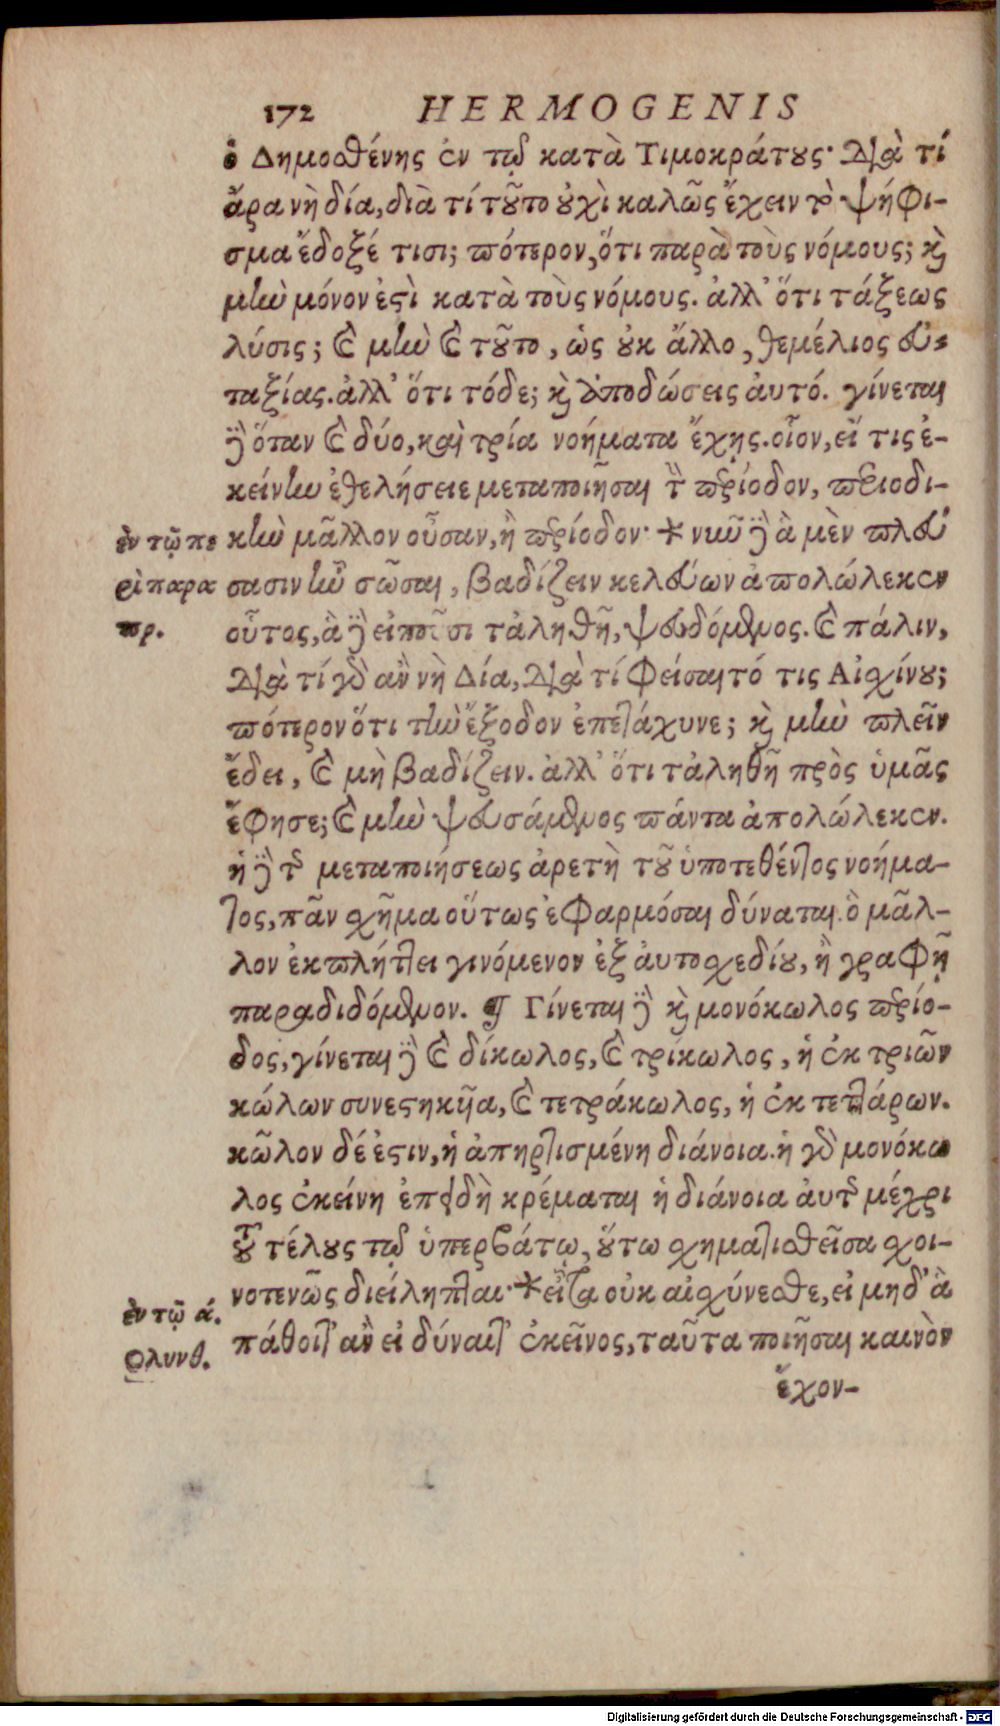 172 HERMOGENIS
ὁ Δημοσθένης ἐν τῷ κατὰ Τιμοκράτους· Διὰ τί
ἄρα νὴ δία, διὰ τί τοῦτο οὐχὶ καλῶς ἔχειν τὸ ψήφι-
σμα ἔδοξέ τισι; πότερον, ὅτι παρὰ τοὺς νόμους; καὶ
μὴν μόνον ἐστὶ κατὰ τοὺς νόμους. ἀλλ' ὅτι τάξεως
λύσις; καὶ μὴν καὶ τοῦτο, ὡς οὐκ ἄλλο, θεμέλιος εὐ-
ταξίας. ἀλλ' ὅτι τόδε; καὶ ἀποδώσεις αὐτό. γίνεται
δὲ ὅταν καὶ δύο, καὶ τρία νοήματα ἔχῃς. οἷον, εἴ τις ἐ-
κείνην ἐθελήσειε μεταποιῆσαι τὴν περίοδον, περιοδι-
ἐν τῷ πε
κὴν μᾶλλον οὖσαν, ἢ περίοδον· * νῦν δὲ ἃ μὲν πλεύ
ρὶ παρα
σασιν ἦν σῶσαι, βαδίζειν κελεύων ἀπολώλεκεν
πρ.
οὗτος, ἃ δὲ εἰποῦσι τἀληθῆ, ψευδόμενος. καὶ πάλιν,
Διὰ τί γὰρ ἂν νὴ Δία, Διὰ τί φείσαιτό τις Αἰσχίνου;
πότερον ὅτι τὴν ἔξοδον ἐπετάχυνε; καὶ μὴν πλεῖν
ἔδει, καὶ μὴ βαδίζειν. ἀλλ' ὅτι τἀληθῆ πρὸς ὑμᾶς
ἔφησε; καὶ μὴν ψευσάμενος πάντα ἀπολώλεκεν.
ἡ δὲ τῆς μεταποιήσεως ἀρετὴ τοῦ ὑποτεθέντος νοήμα-
τος, πᾶν σχῆμα οὕτως ἐφαρμόσαι δύναται. ὃ μᾶλ-
λον ἐκπλήττει γινόμενον ἐξ αὐτοσχεδίου, ἢ γραφῇ
παραδιδόμενον. ¶ Γίνεται δὲ καὶ μονόκωλος περίο-
δος, γίνεται δὲ καὶ δίκωλος, καὶ τρίκωλος, ἡ ἐκ τριῶν
κώλων συνεστηκυῖα, καὶ τετράκωλος, ἡ ἐκ τεττάρων.
κῶλον δέ ἐστιν, ἡ ἀπηρτισμένη διάνοια. ἡ γὰρ μονόκω
λος ἐκείνη ἐπειδὴ κρέμαται ἡ διάνοια αὐτῆς μέχρι
τοῦ τέλους τῷ ὑπερβάτῳ, οὕτω σχηματισθεῖσα σχοι-
νοτενῶς διείληπται· * εἶτα οὐκ αἰσχύνεσθε, εἰ μηδ' ἃ
ἐν τῷ ά.
πάθοιτ' ἂν εἰ δύναιτ' ἐκεῖνος, ταῦτα ποιῆσαι καινὸν
Ολυνθ.
ἔχον-
Digitalisierung gefördert durch die Deutsche Forschungsgemeinschaft - DFG